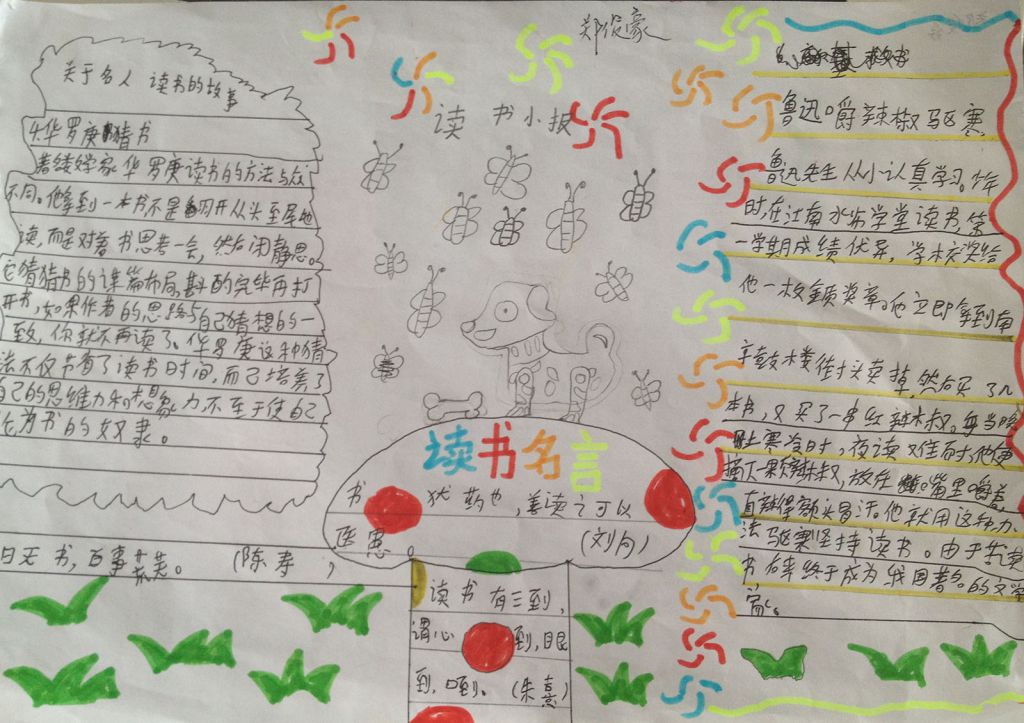 郑俊豪
读书小报
关于名人 读书的故事
4.华罗庚猜书
著名数学家华罗庚读书的方法与众
不同。他拿到一本书,不是翻开从头至尾地
读,而是对着书思考一会,然后闭静思。
它猜猜书的谋篇布局,斟酌完毕再打
开书,如果作者的思路与自己猜想的一
致,你就不再读了。华罗庚这种猜
法不仅节省了读书时间,而己培养了
自己的思维力和想象力,不至于使自己
沦为书的奴隶。
日无书,百事荒芜。 (陈寿)
读书名言
书 犹药也,善读之可以
医愚。 (刘向)
读书有三到,
谓心 到,眼
到,口到。(朱熹)
鲁迅嚼辣椒驱寒
鲁迅先生从小认真学习。少年
时,在江南水师学堂读书,第
一学期成绩优异,学校奖给
他一枚金质奖章。他立即拿到南
京鼓楼街头卖掉,然后买了几
本书,又买了一串红辣椒。每当晚
上寒冷时,夜读难耐,他便
摘下一颗辣椒,放在嘴里嚼着,
直辣得额头冒汗。他就用这种办
法驱寒坚持读书。由于苦读
书,后来终于成为我国著名的文学
家。